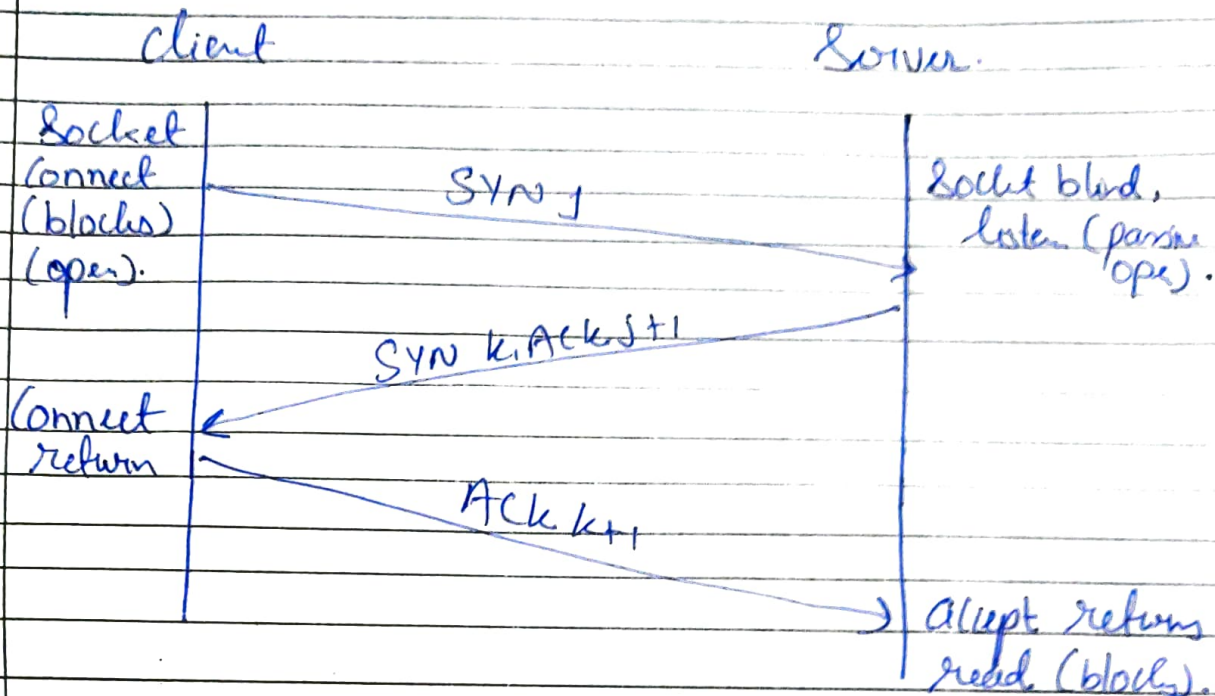 Client
Server.
Socket
Connect
(blocks)
(open).
SYN J
Socket bind,
listen (passive
open).
SYN k, Ack J+1
Connect
return
ACk k+1
accept returns
read (blocks).